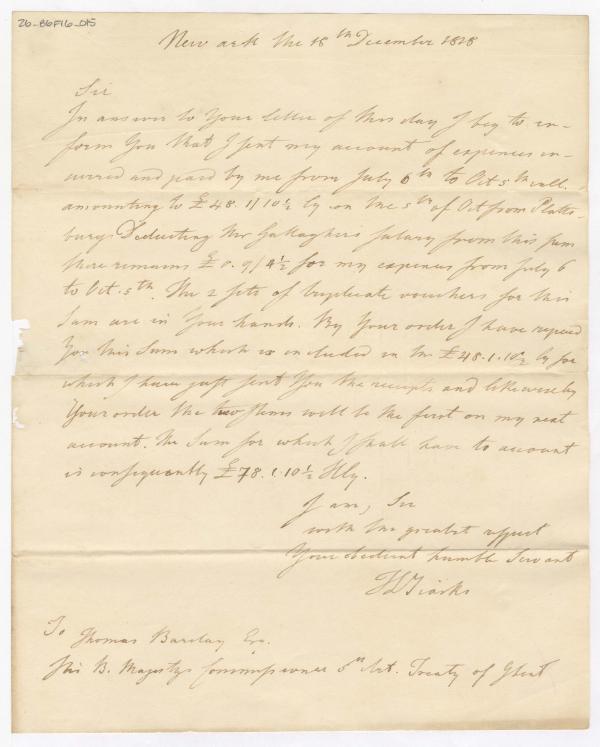 26-B6F16-015
New ark the 18th December 1828
Sir
In answer to Your letter of this day I beg to in-
form You that I sent my account of expences in-
curred and paid by me from July 6th to Oct 5th
amounting to £48.1/10½ on the 5th of Oct from Platts-
burg. Deducting Mr Gallaghers Salary from this Sum
there remains £ 9/4½ for my expences from July 6
to Oct. 5th. The 2 sets of triplicate vouchers for this
Sum are in Your hands. By Your order I have repaid
You this Sum which is included in the £48.1.10½ for
which I have just sent You the receipts and likewise by
Your order the two Items will be the first on my next
account. The Sum for which I shall have to account
is consequently £78.1.10½ Hly.
I am, Sir
with the greatest respect
Your obedient humble Servant
Tiarks
To Thomas Barclay Esq.
His B. Majestys Commissioner 5th Art. Treaty of Ghent